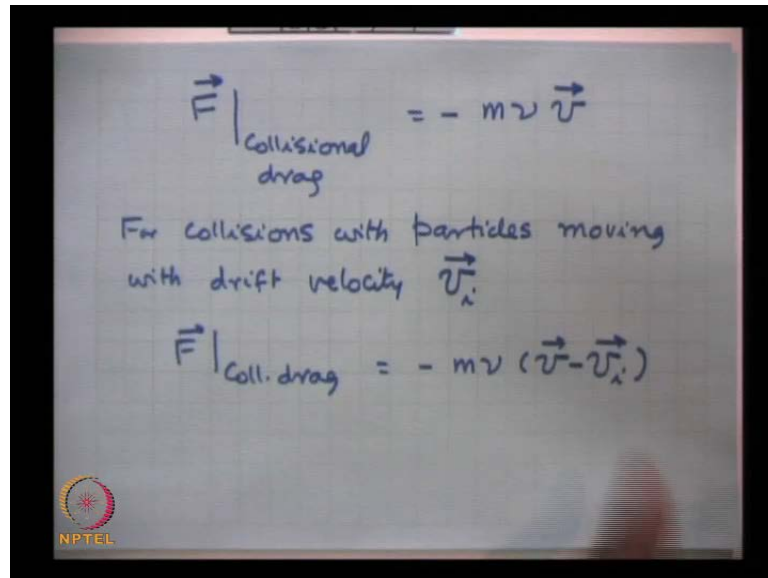 F⃗ |Collisional drag = - mν v⃗
For collisions with particles moving
with drift velocity v⃗ᵢ
F⃗ |Coll. drag = - mν (v⃗ - v⃗ᵢ)
NPTEL